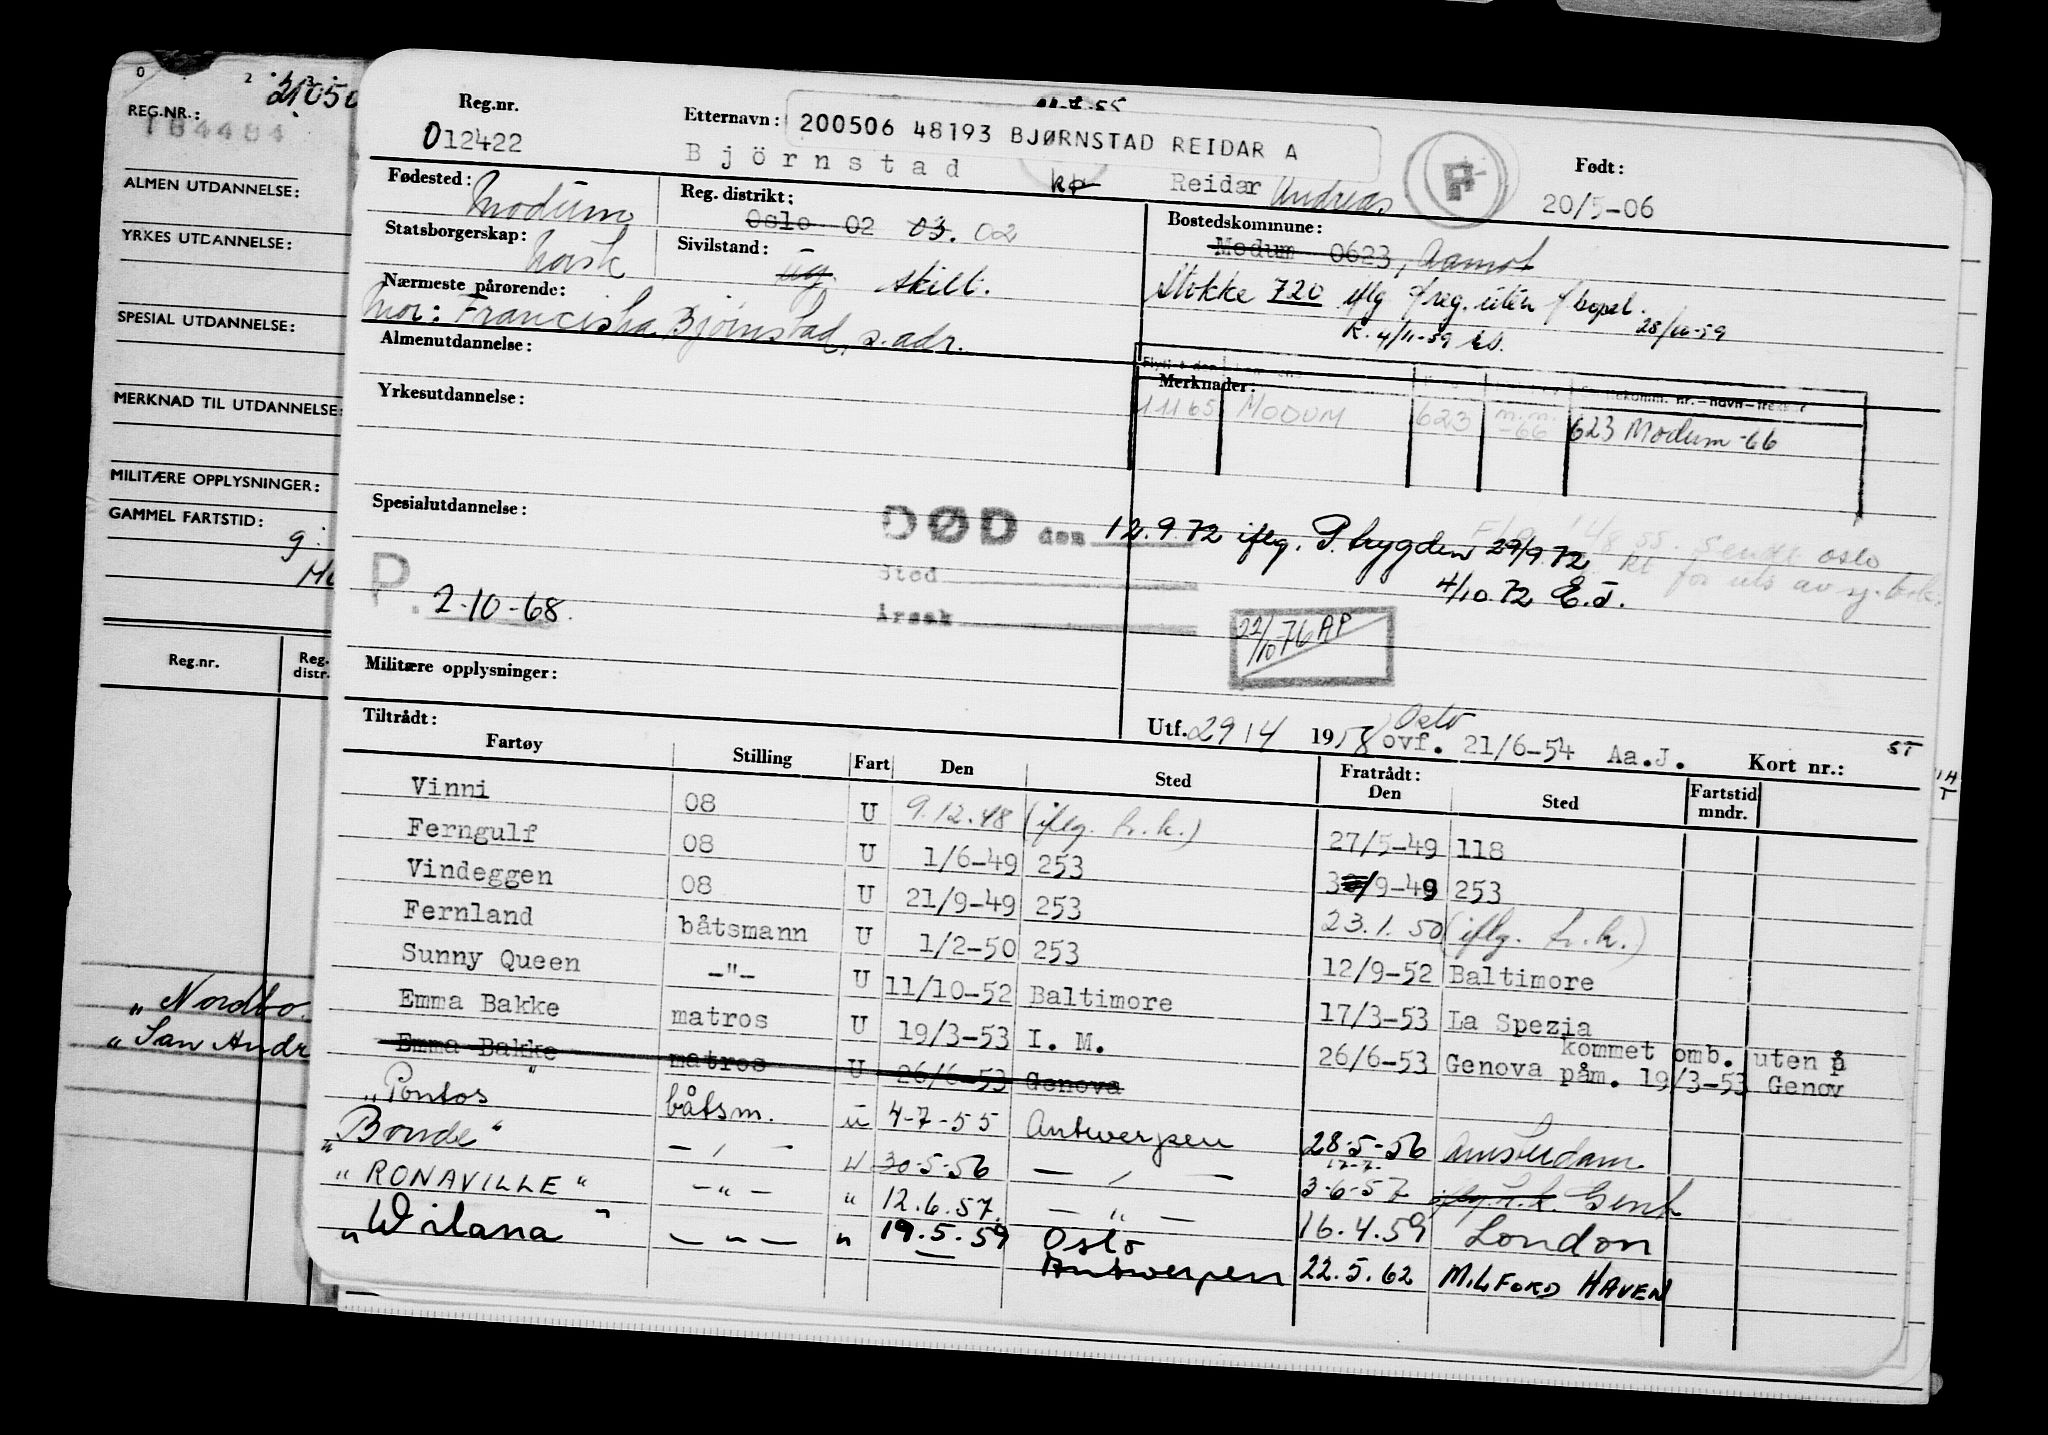 0 2 3
21050
REG.NR.:
184484
ALMEN UTDANNELSE:
YRKES UTDANNELSE:
SPESIAL UTDANNELSE:
MERKNAD TIL UTDANNELSE:
MILITÆRE OPPLYSNINGER:
GAMMEL FARTSTID:
Reg.nr. Reg. distr.
"Nordbo
"San Andr
Reg.nr. 012422
Etternavn: 200506 48193 BJØRNSTAD REIDAR A
Björnstad Reidar Andreas
Født: 20/5-06
Fødested: Modum
Reg. distrikt: Oslo 02 03. 02
Bostedskommune: Modum 0623, Aamot
Statsborgerskap: Norsk
Sivilstand: ug. skilt.
Stokke 720 iflg f/reg. uten f/bopel. 28/10-59
K. 4/11-59
Nærmeste pårørende:
Mor: Franciska Bjørnstad, s. adr.
Almenutdannelse:
Merknader:
11165 MODUM 623 m.m. -66 623 Modum -66
Yrkesutdannelse:
Spesialutdannelse:
DØD den 12.9.72 iflg. P. trygden 29/9.72
4/10.72 E.J.
Sendt Oslo
Sted
Årsak
P. 2-10-68.
22/10 76 AP
Militære opplysninger:
Utf. 2914 1958 Oslo ovf. 21/6-54 Aa.J. Kort nr.: ST
Tiltrådt: Fratrådt:
Fartøy Stilling Fart Den Sted Den Sted Fartstid mndr.
Vinni 08 U 9.12.48 (iflg. h.k.) 27/5-49 118
Ferngulf 08 U 1/6-49 253 /9-49 253
Vindeggen 08 U 21/9-49 253 23.1.50 (iflg. h.k.)
Fernland båtsmann U 1/2-50 253 12/9-52 Baltimore
Sunny Queen -"- U 11/10-52 Baltimore 17/3-53 La Spezia
Emma Bakke matros U 19/3-53 I. M. 26/6-53 Genova
kommet omb. uten p
påm. 19/3-53 Genov
Emma Bakke matros U 26/6-53 Genova
"Pontos" båtsm. u 4-7-55 Antwerpen 28-5-56 Amsterdam
"Bonde" -,- u 30-5-56 -,- 3-6-57 iflg. h.k. Genk
"RONAVILLE" -"- " 12.6.57. -"- 16.4.59 London
"Wilana" -"- " 19.5.59 Oslo Antwerpen 22.5.62 MILFORD HAVEN